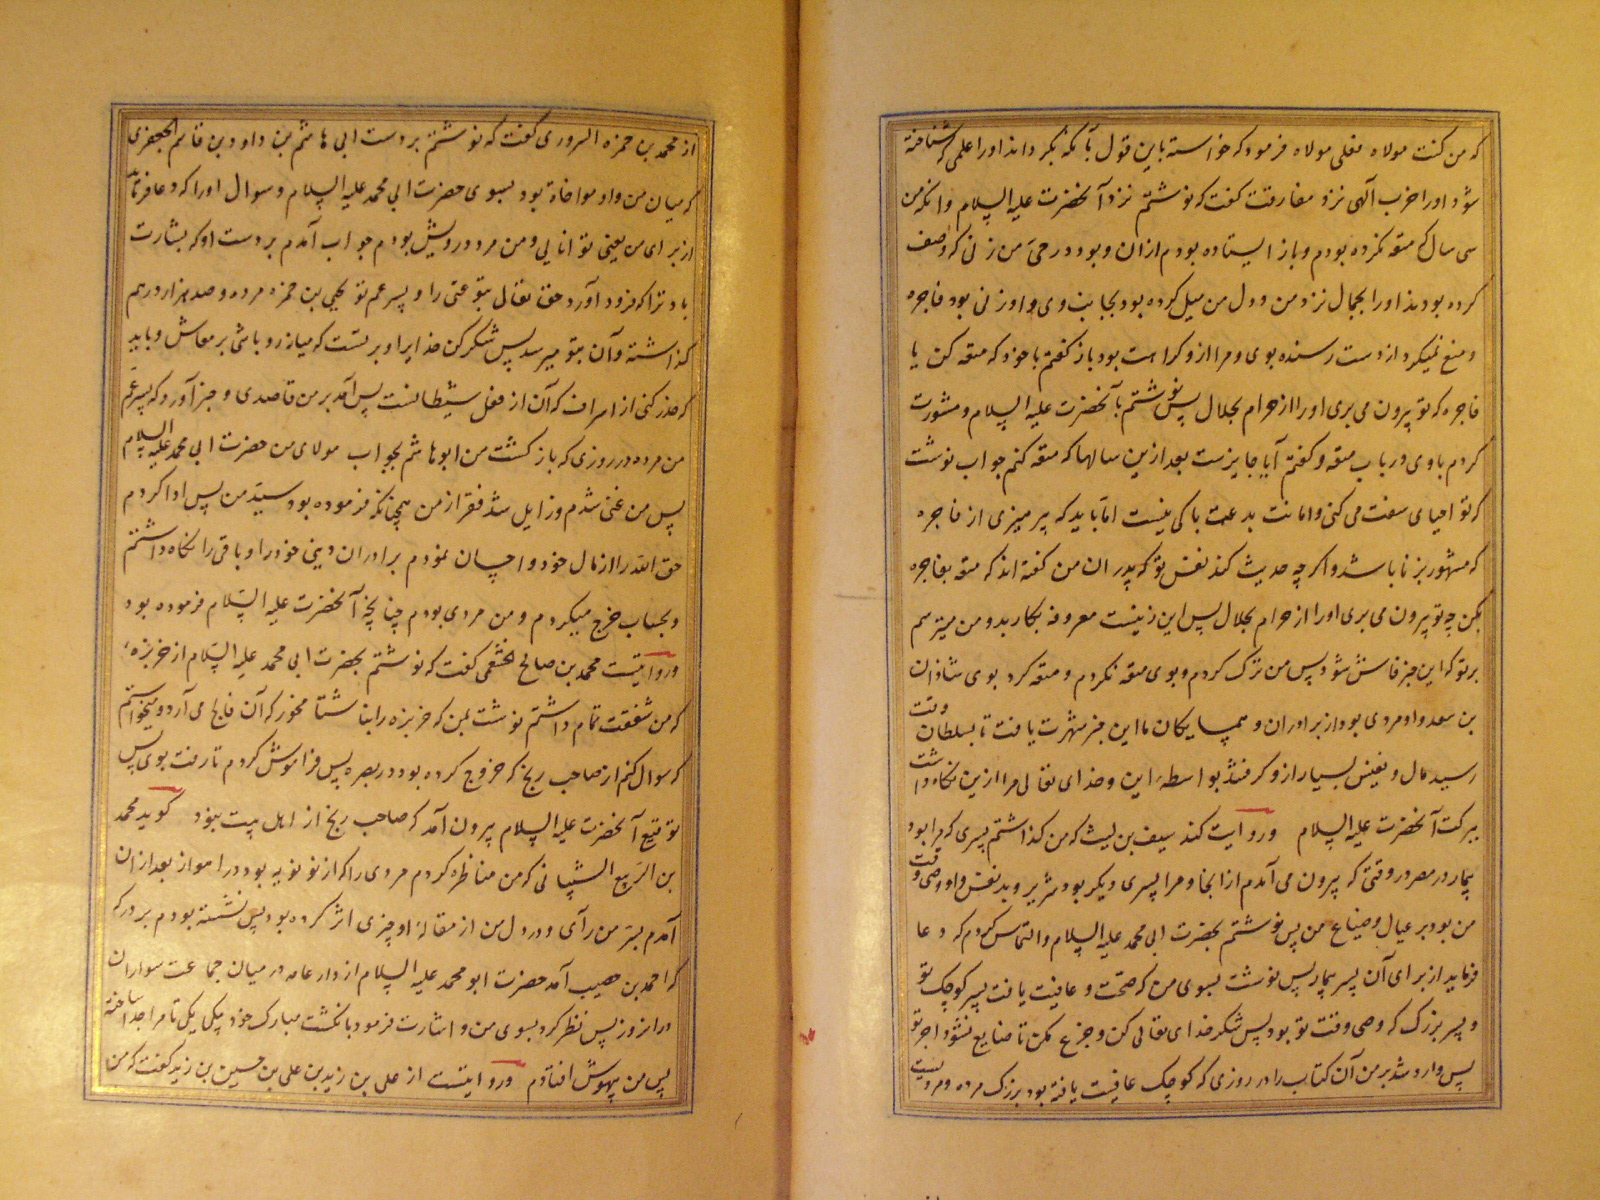 که من کنت مولاه فعلی مولاه فرمود که خواسته باین قول بآنکه بگرداند او را علمی که شناخته
شود او را حزب آلهی نزد مفارقت گفت که نوشتم نزد آنحضرت علیه السلام وانکه من
سی سال که متعه نکرده بودم و باز ایستاده بودم از ان و بود در حی من زنی که وصف
کرده بودند او را بجمال نزد من و دل من میل کرده بود بجانب وی و او زنی بود فاجره
و منع نمیکرد از دست رسنده بوی و مرا از و کراهت بود باز گفتم با خود که متعه کن با
فاجره که تو بیرون می بری او را از حرام بحلال پس نوشتم بآنحضرت علیه السلام و مشورت
کردم با وی در باب متعه و گفتم آیا جایزست بعد ازین سالها که متعه کنم جواب نوشت
که تو احیای سنت می کنی و امانت بدعت باکی نیست اما باید که پرهیزی از فاجره
که مشهور بزنا باشد و اگر چه حدیث کند نفس تو که پدران من گفته اند که متعه بفاجره
بکن چه تو بیرون می بری او را از حرام بحلال پس این زنیست معروفه بکار بد و من میترسم
بر تو که این خبر فاش شود پس من ترک کردم و بوی متعه نکردم و متعه کرد بوی شاذان
بن سعد و او مردی بود از برادران و همسایکان ما این خبر شهرت یافت تا بسلطان وقت
رسید مال و نفیس بسیار ازو گرفتند بواسطه این و خدای تعالی مرا ازین نگاه داشت
ببرکت آنحضرت علیه السلام و روایت کند سیف بن لیث که من گذاشتم پسری که مرا بود
بیمار در مصر در وقتی که بیرون می آمدم از انجا و مرا پسری دیگر بود شریر و بد نفس و او وصی وقت
من بود بر عیال و ضیاع من پس نوشتم بحضرت ابی محمد علیه السلام والتماس کردم که دعا
فرماید از برای آن پسر بیمار پس نوشت بسوی من که صحت و عافیت یافت پسر کوچک تو
و پسر بزرگ که وصی وقت تو بود پس شکر خدای تعالی کن و جزع مکن تا ضایع نشود اجر تو
پس وارد شد بر من آن کتاب را در روزی که کوچک عافیت یافته بود بزرگ مرده و مرویست
از محمد بن حمزه السروری گفت که نوشتم بر دست ابی هاشم بن داود بن قاسم الجعفری
که میان من و او مواخاة بود بسوی حضرت ابی محمد علیه السلام و سوال او را که دعا فرماید
از برای من یعنی توانایی و من مرد درویش بودم جواب آمدم بر دست او که بشارت
باد ترا که فرود آورد حق تعالی بتو غنی را و پسر عم تو یحیی بن حمزه مرده و صد هزار درهم
گذاشته و آن بتو میرسد پس شکر کن خدایرا و بر تست که میانه رو باشی بر معاش و باید
که حذر کنی از اسراف که آن از فعل شیطانست پس آمد بر من قاصدی و خبر آورد که پسر عم
من مرده در روزی که بازگشت من ابوهاشم بجواب مولای من حضرت ابی محمد علیه السلام
پس من غنی شدم و زایل شد فقر از من همچنانکه فرموده بود سید من پس ادا کردم
حق الله را از مال خود و احسان نمودم برادران دینی خود را و باقی را نگاه داشتم
و بحساب خرج میکردم و من مردی بودم چنانچه آنحضرت علیه السلام فرموده بود
و روایتست محمد بن صالح الخثعمی گفت که نوشتم بحضرت ابی محمد علیه السلام از خربزه
که من شغفت تمام داشتم نوشت بمن که خربزه را بناشتا مخور که آن فالج می آرد و میخواستم
که سوال کنم از صاحب زنج که خروج کرده بود در بصره پس فراموش کردم تا رفت بوی پس
توقیع آنحضرت علیه السلام بیرون آمد که صاحب زنج از اهل بیت نبود گوید محمد
بن الربیع الشیبانی که من مناظره کردم مردی را که از ثنویه بود در اهواز بعد از ان
آمدم بسر من رآی و در دل من از مقاله او چیزی اثر کرده بود پس نشسته بودم بر در که
که احمد بن خصیب آمد حضرت ابو محمد علیه السلام از دار عامه در میان جماعت سواران
در انروز پس نظر کرد بسوی من و اشارت فرمود بانگشت مبارک خود یکی یکی تا مرا جدا ساخته
پس من بیهوش افتادم و روایتست از علی بن زید بن علی بن حسین بن زید گفت که من